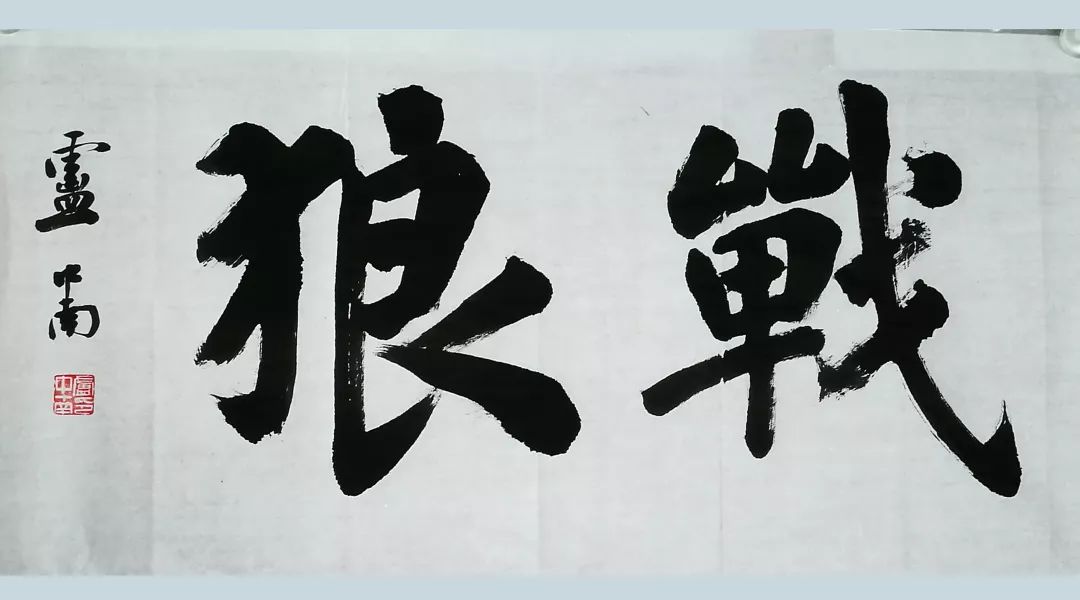 戰狼
盧中南
盧中南印